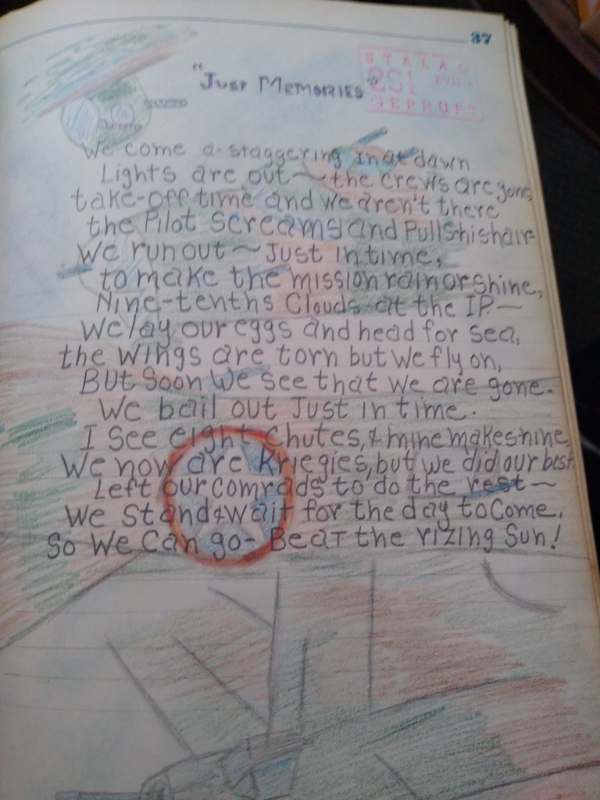 37
"Just Memories"
STALAG
GEPRÜFT
We come a-staggering in at dawn
Lights are out ~ the crews are gone,
take-off time and we aren't there
the Pilot Screams and Pulls his hair
We run out ~ Just in time,
to make the mission rain or shine,
Nine-tenths Clouds at the IP ~
We lay our eggs and head for sea,
the Wings are torn but we fly on,
But Soon We see that we are gone.
We bail out Just in time.
I See eight Chutes, & mine makes nine
We now are Kriegies, but we did our best
Left our comrads to do the rest ~
We Stand & wait for the day to Come,
So We Can go - Beat the rizing Sun!